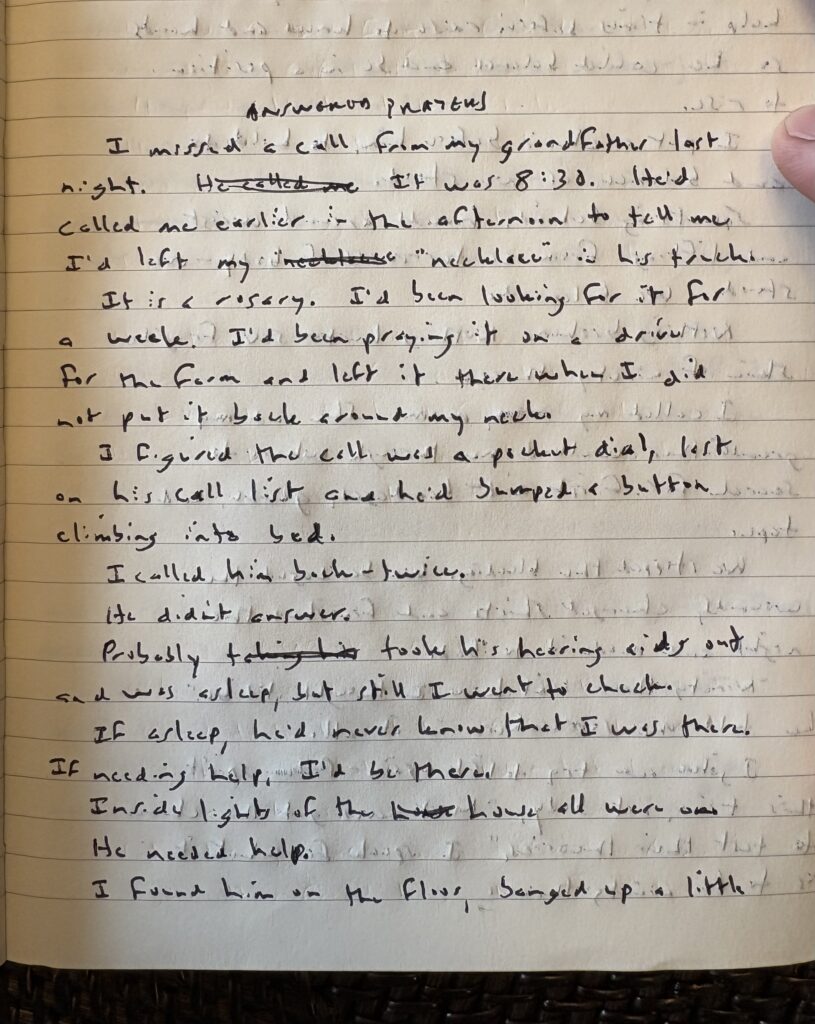 ANSWERED PRAYERS
I missed a call from my grandfather last
night. He called me It was 8:30. He'd
called me earlier in the afternoon to tell me
I'd left my "necklace" "necklace" in his truck.
It is a rosary. I'd been looking for it for
a week. I'd been praying it on a drive
for the farm and left it there when I did
not put it back around my neck.
I figured the call was a pocket dial, last
on his call list and he'd bumped a button
climbing into bed.
I called him back - twice.
He didn't answer.
Probably taking his took his hearing aids out
and was asleep, but still I went to check.
If asleep, he'd never know that I was there.
If needing help, I'd be there.
Inside lights of the house all were on.
He needed help.
I found him on the floor, banged up a little